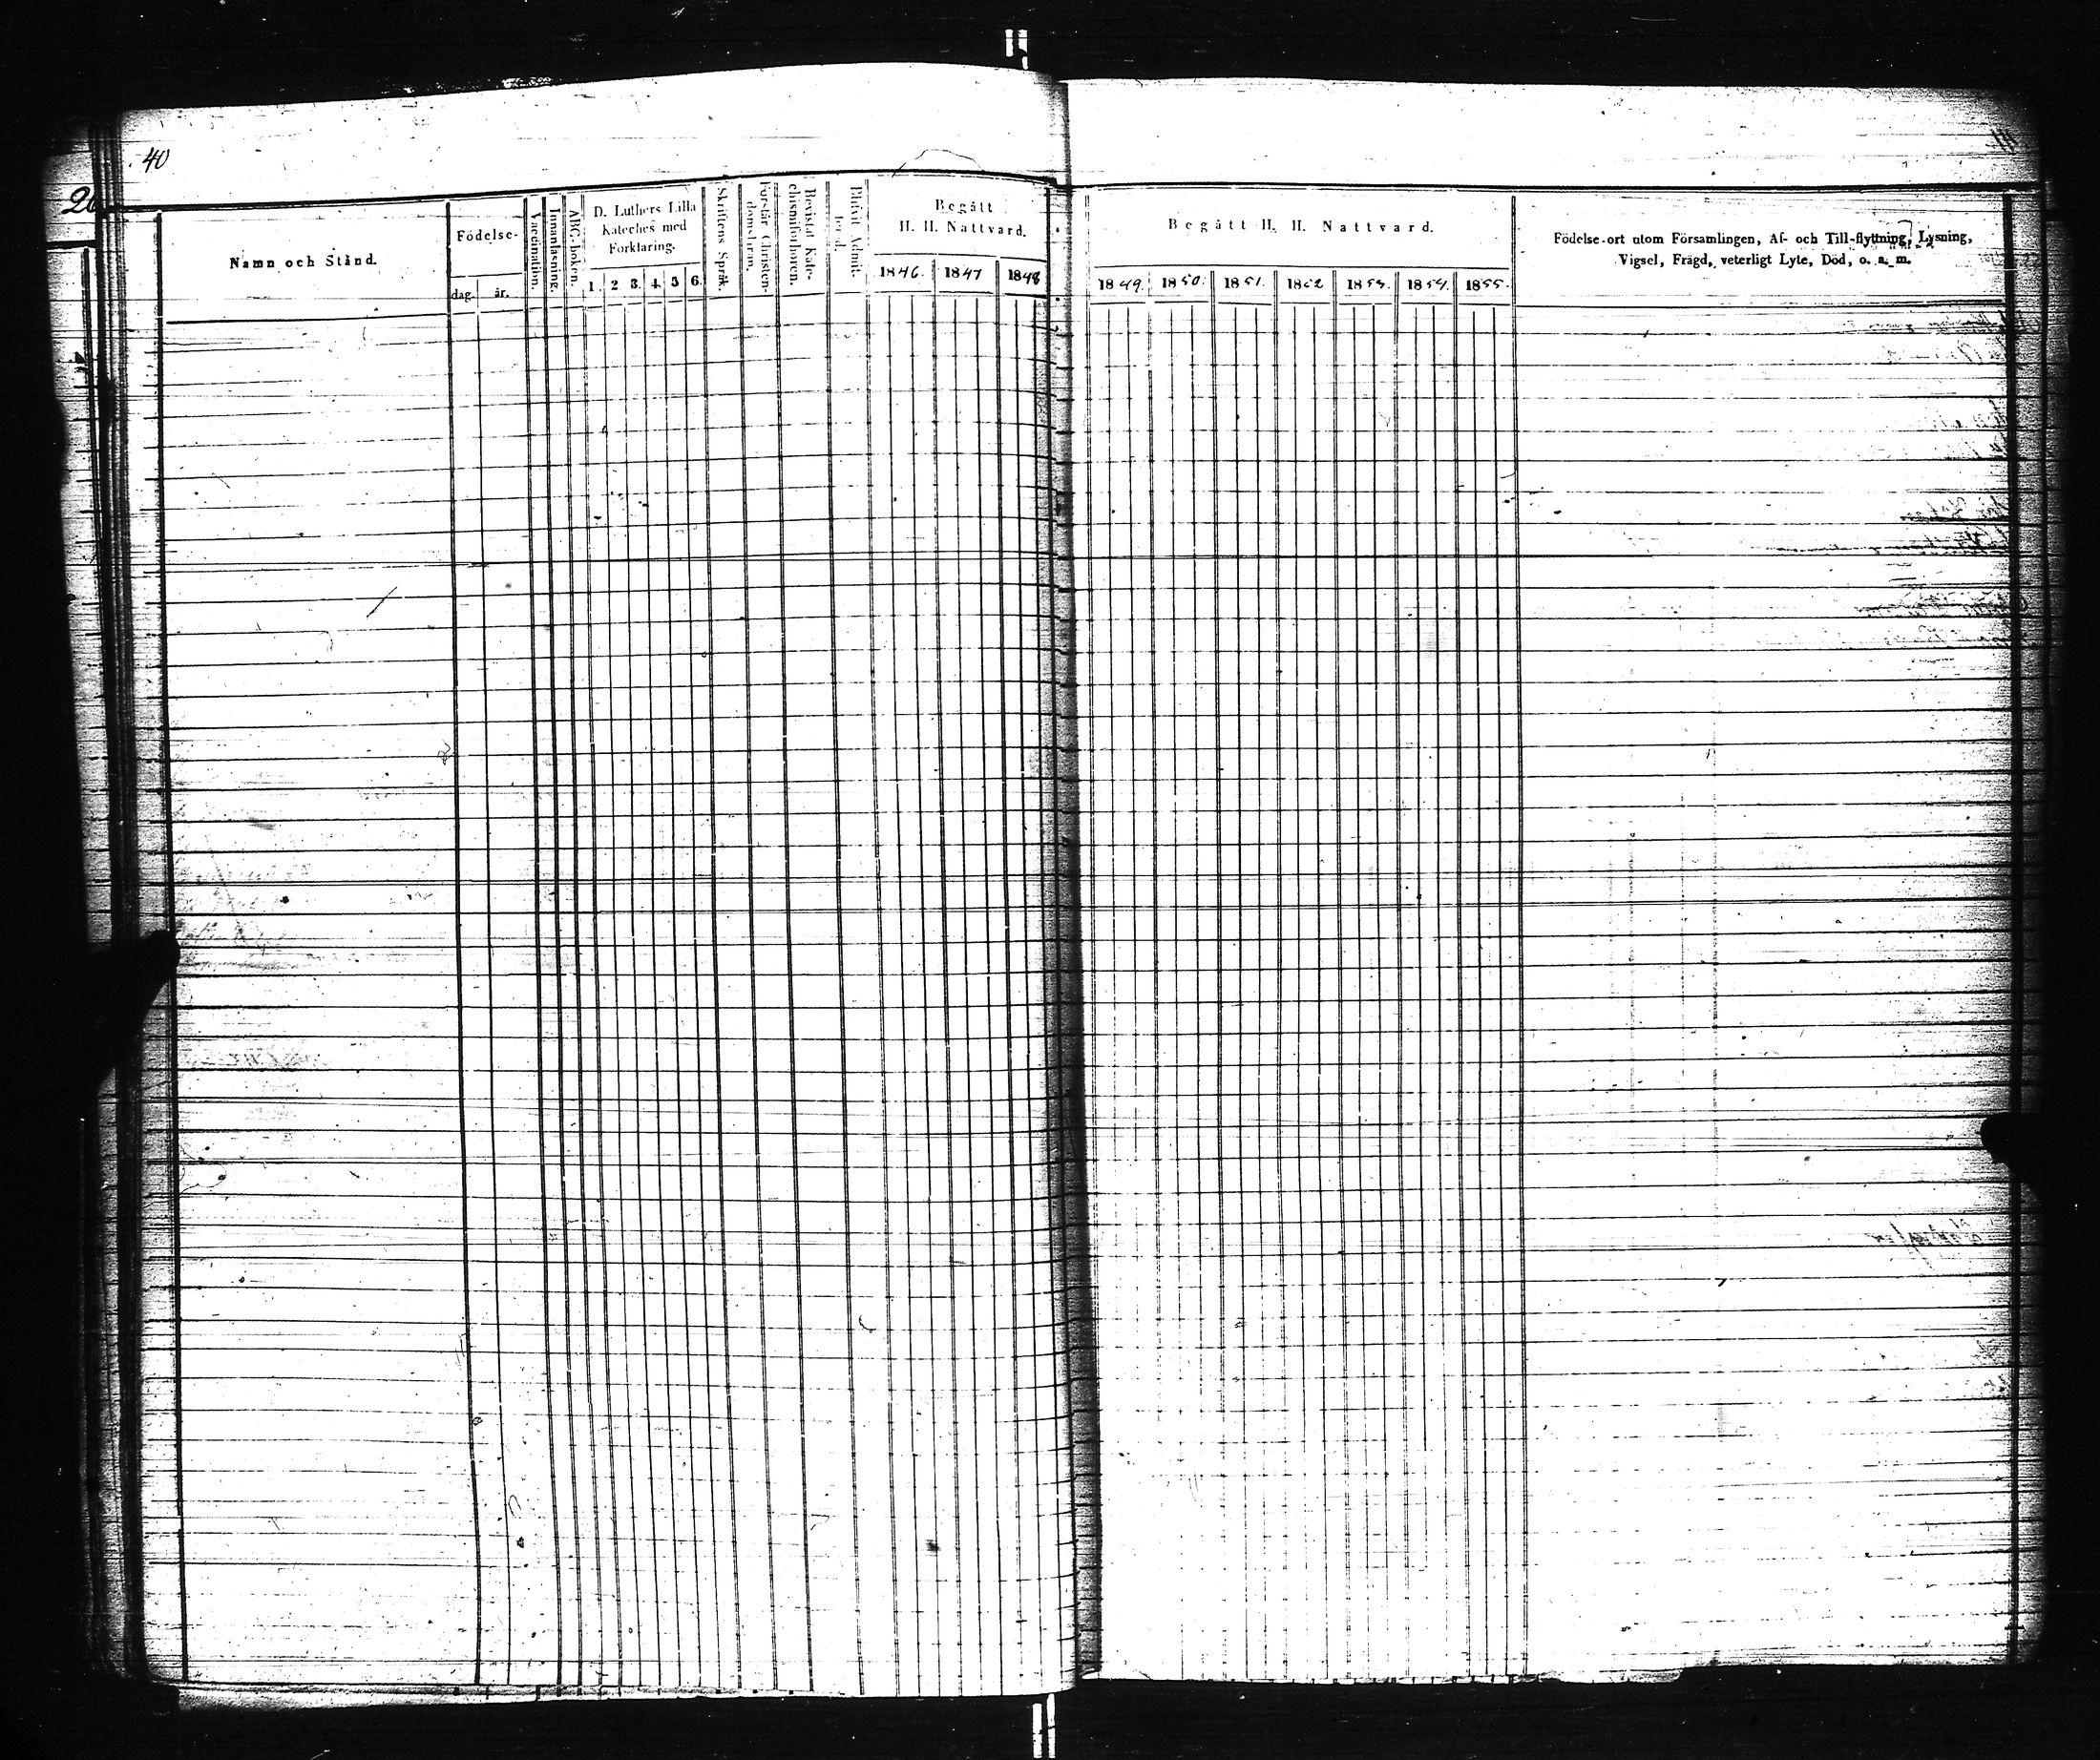 40
20
Namn och Stånd.
Födelse-
dag. år.
Vaccination.
Innanläsning.
ABC-boken.
D. Luthers Lilla
Kateches med
Förklaring.
1. 2. 3. 4. 5 6.
Skriftens Språk.
Förstår Christen-
domsläran.
Bevistat Kate-
chismiförhören.
Blifvit Admit-
terad.
Begått
H. H. Nattvard.
1846. 1847 1848
Begått H. H. Nattvard.
1849. 1850. 1851. 1852 1853. 1854. 1855.
Födelse-ort utom Församlingen, Af- och Till-flyttning, Lysning,
Vigsel, Frägd, veterligt Lyte, Död, o. a. m.